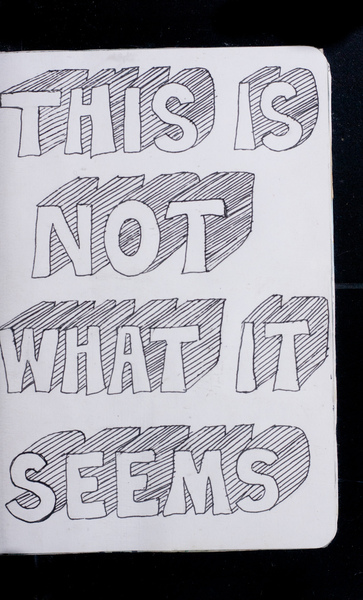 THIS IS
NOT
WHAT IT
SEEMS